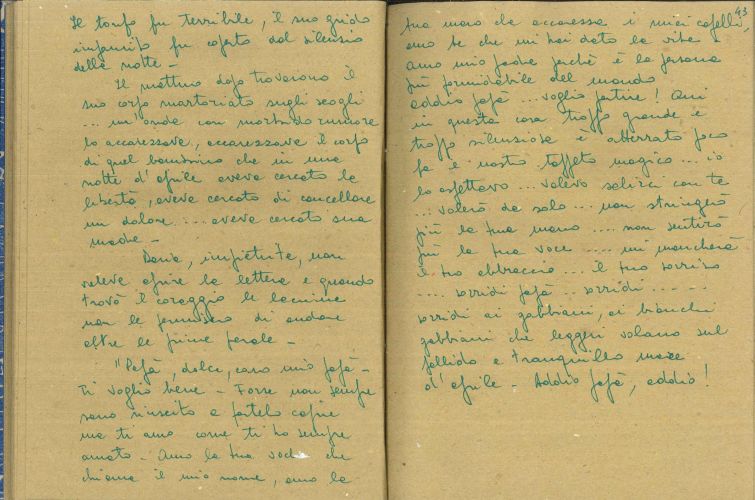 Il tonfo fu terribile, il suo grido
impaurito fu coperto dal silenzio
della notte -
Il mattino dopo trovarono il
suo corpo martoriato sugli scogli
... un'onda con morbido rumore
lo accarezzava, accarezzava il corpo
di quel bambino che in una
notte d'aprile aveva cercato la
libertà, aveva cercato di cancellare
un dolore ... aveva cercato sua
madre -
impietrito, non
voleva aprire la lettera e quando
trovò il coraggio le lacrime
non le permisero di andare
oltre le prime parole -
"Papà, dolce, caro mio papà -
Ti voglio bene - Forse non sempre
sono riuscito a fartelo capire
ma ti amo come ti ho sempre
amato - Amo la tua voce che
chiama il mio nome, amo la
43
tua mano che accarezza i miei capelli,
amo te che mi hai dato la vita e
amo mio padre perché è la persona
più formidabile del mondo
addio papà ... voglio partire! Qui
in questa casa troppo grande e
troppo silenziosa è atterrato poco
fa il nostro tappeto magico ... io
lo aspettavo ... volevo salirci con te
... volerò da solo ... non stringerò
più la tua mano .... non sentirò
più la tua voce .... mi mancherà
il tuo abbraccio ... il tuo sorriso
.... sorridi papà .. sorridi ......
sorridi ai gabbiani, ai bianchi
gabbiani che leggeri volano sul
pallido e tranquillo mare
d'aprile - Addio papà, addio!